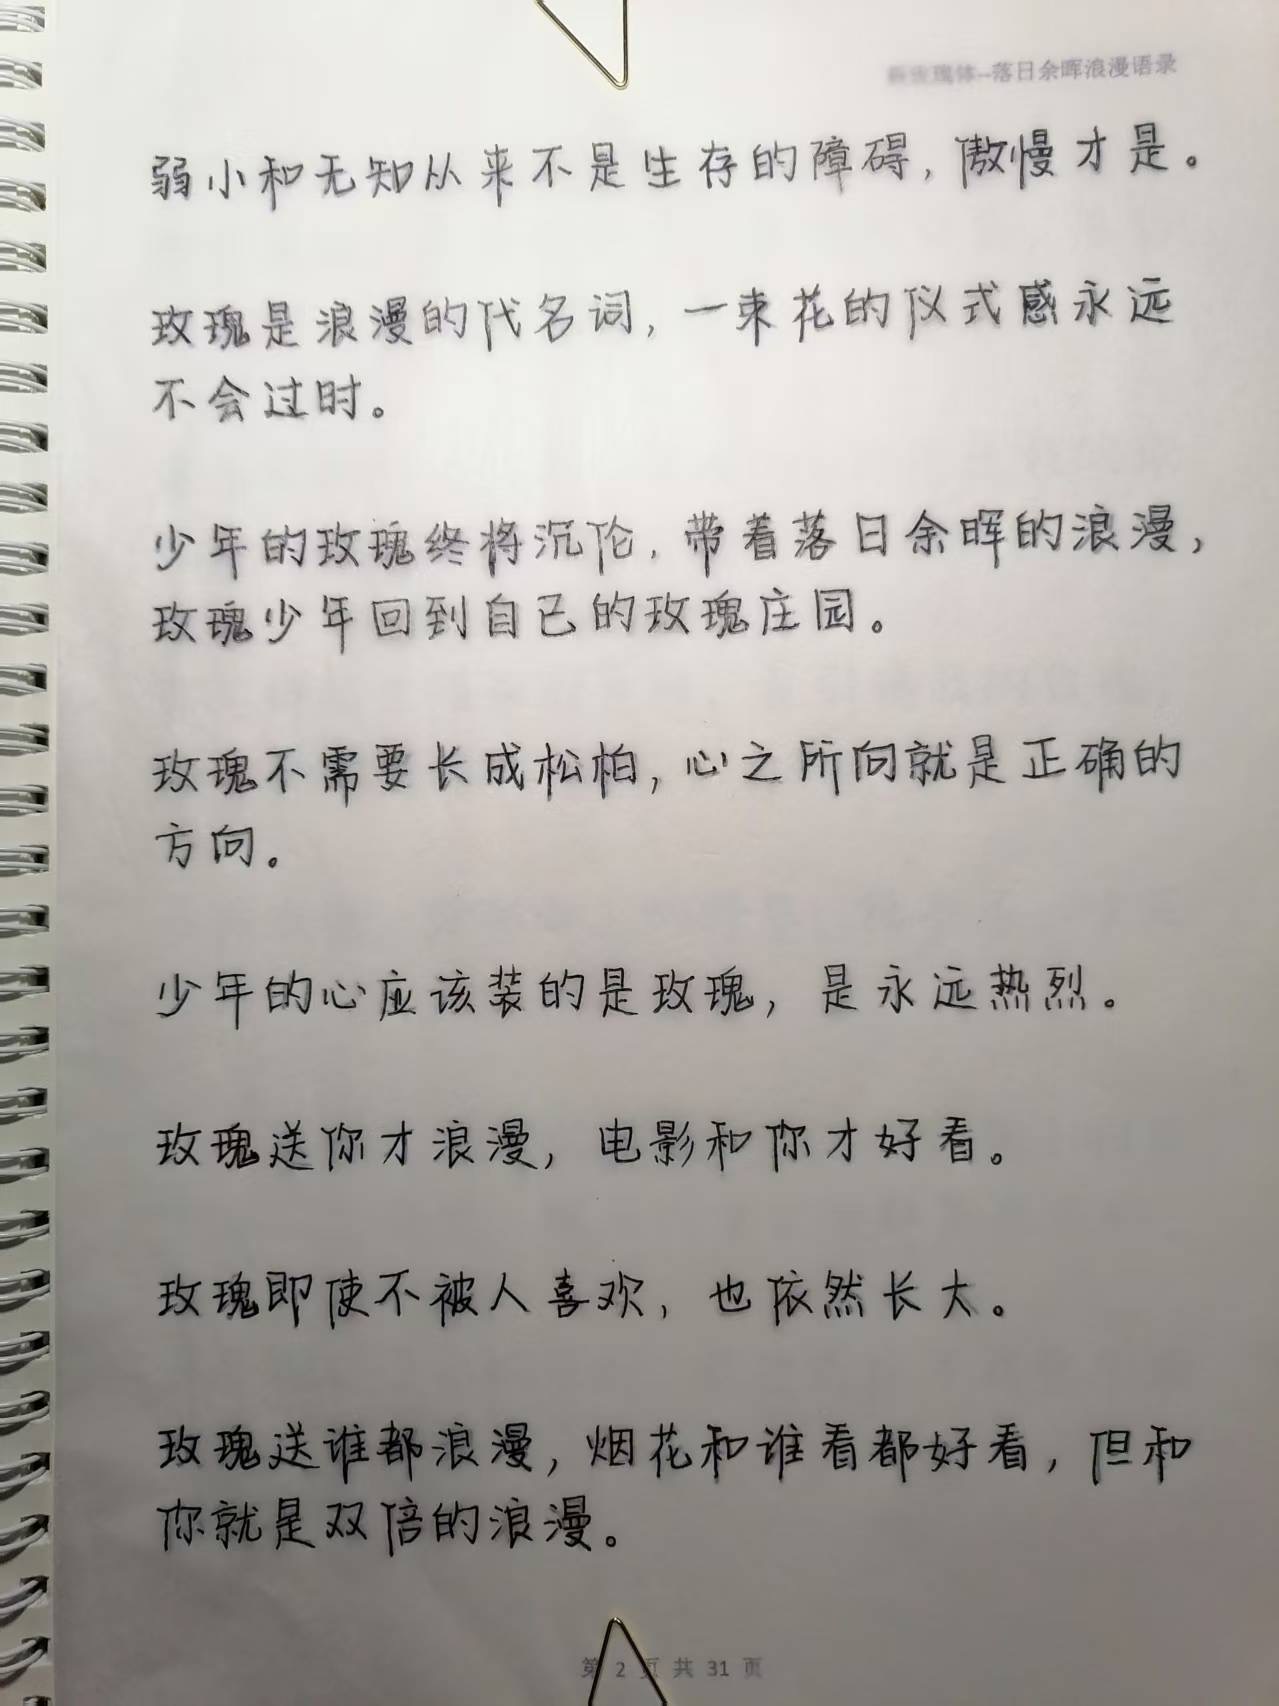 落日余晖浪漫语录
弱小和无知从来不是生存的障碍，傲慢才是。
玫瑰是浪漫的代名词，一束花的仪式感永远
不会过时。
少年的玫瑰终将沉沦，带着落日余晖的浪漫，
玫瑰少年回到自己的玫瑰庄园。
玫瑰不需要长成松柏，心之所向就是正确的
方向。
少年的心应该装的是玫瑰，是永远热烈。
玫瑰送你才浪漫，电影和你才好看。
玫瑰即使不被人喜欢，也依然长大。
玫瑰送谁都浪漫，烟花和谁看都好看，但和
你就是双倍的浪漫。
第 2 页 共 31 页